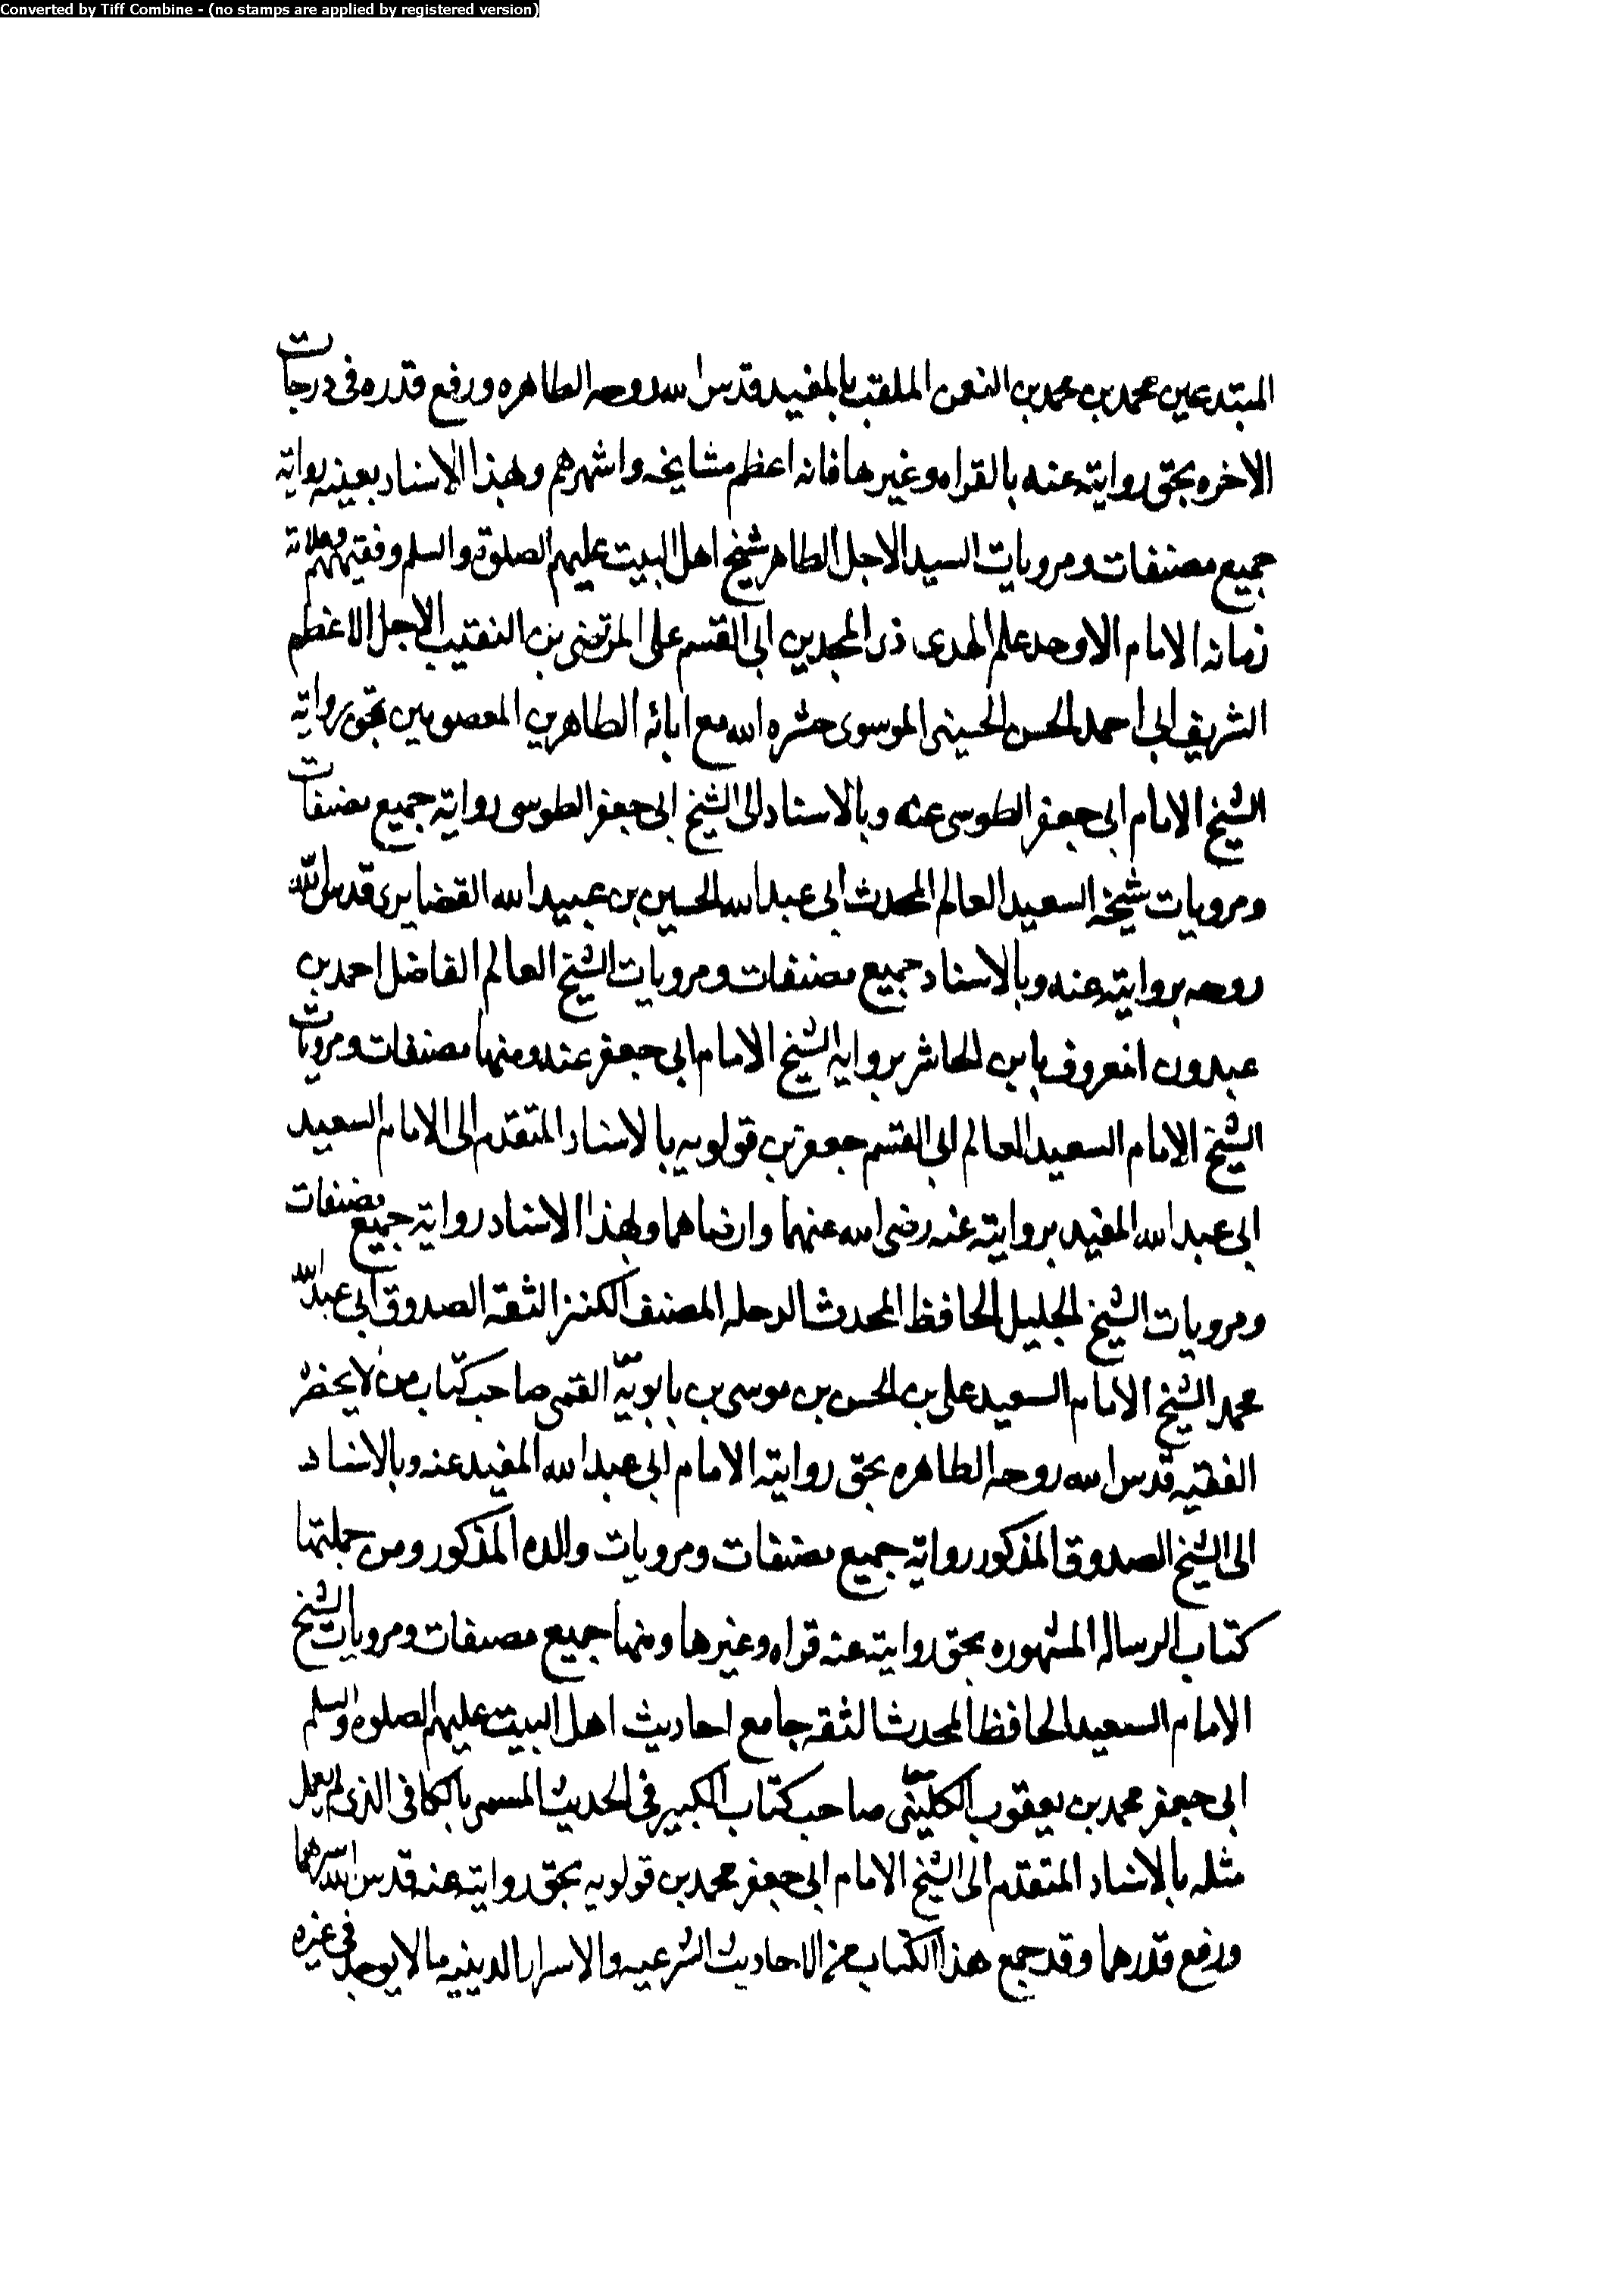 Converted by Tiff Combine - (no stamps are applied by registered version)
المبتدعين محمد بن محمد بن النعمن الملقب بالمفيد قدس الله روحه الطاهره ورفع قدره فى درجات
الاخره بحق روايته عنه بالقراه وغيرها فانه اعظم مشايخه واشهرهم وبهذا الاسناد بعينه رواية
جميع مصنفات ومرويات السيد الاجل الطاهر شيخ اهل البيت عليهم الصلوة والسلم وفقيههم وعلامة
زمانه الامام الاوحد علم الهدى ذى المجدين ابى القسم على المرتضى بن النقيب الاجل الاعظم
الشريف ابى احمد الحسن الحسينى الموسوى حشره الله مع ابائه الطاهرين المعصومين بحق رواية
الشيخ الامام ابى جعفر الطوسى عنه وبالاسناد الى الشيخ ابى جعفر الطوسى رواية جميع مصنفات
ومرويات شيخه السعيد العالم المحدث ابى عبد الله الحسين بن عبيد الله الغضايرى قدس الله
روحه بروايته عنه وبالاسناد جميع مصنفات ومرويات الشيخ العالم الفاضل احمد بن
عبدون المعروف بابن الحاشر برواية الشيخ الامام ابى جعفر عنه ومنها مصنفات ومرويات
الشيخ الامام السعيد العالم ابى القسم جعفر بن قولويه بالاسناد المتقدم الى الامام السعيد
ابى عبد الله المفيد بروايته عنه رضى الله عنهما وارضاهما وبهذا الاسناد رواية جميع مصنفات
ومرويات الشيخ الجليل الحافظ المحدث الرحله المصنف الكنز الثقة الصدوق ابى عبد الله
محمد الشيخ الامام السعيد على بن الحسن بن موسى بن بابويه القمى صاحب كتاب من لا يحضر
الفقيه قدس الله روحه الطاهره بحق رواية الامام ابى عبد الله المفيد عنه وبالاسناد
الى الشيخ الصدوق المذكور رواية جميع مصنفات ومرويات والده المذكور ومن جملتها
كتاب الرساله المشهوره بحق روايته عنه قراه وغيرها ومنها جميع مصنفات ومرويات الشيخ
الامام السعيد الحافظ المحدث الثقه جامع احاديث اهل البيت عليهم الصلوه والسلم
ابى جعفر محمد بن يعقوب الكلينى صاحب كتاب الكبير فى الحديث المسمى بالكافى الذى لم يعمل
مثله بالاسناد المتقدم الى الشيخ الامام ابى جعفر محمد بن قولويه بحق روايته عنه قدس الله سرهما
ورفع قدرهما وقد جمع هذا الكتاب من الاحاديث الشرعيه والاسرار الدينيه ما لا يوجد فى غيره